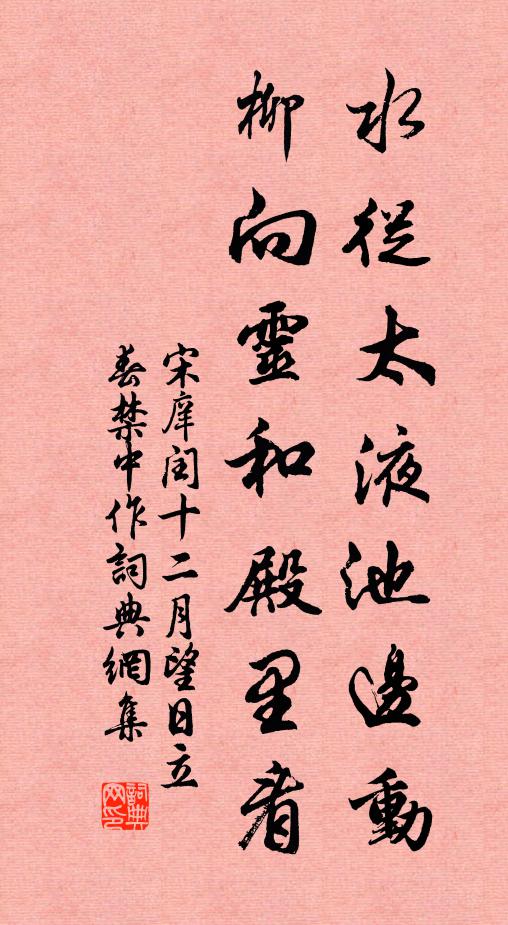 水從太液池邊動
柳向靈和殿里看
宋庠閏十二月望日立
春禁中作詞典網集
詞典网印